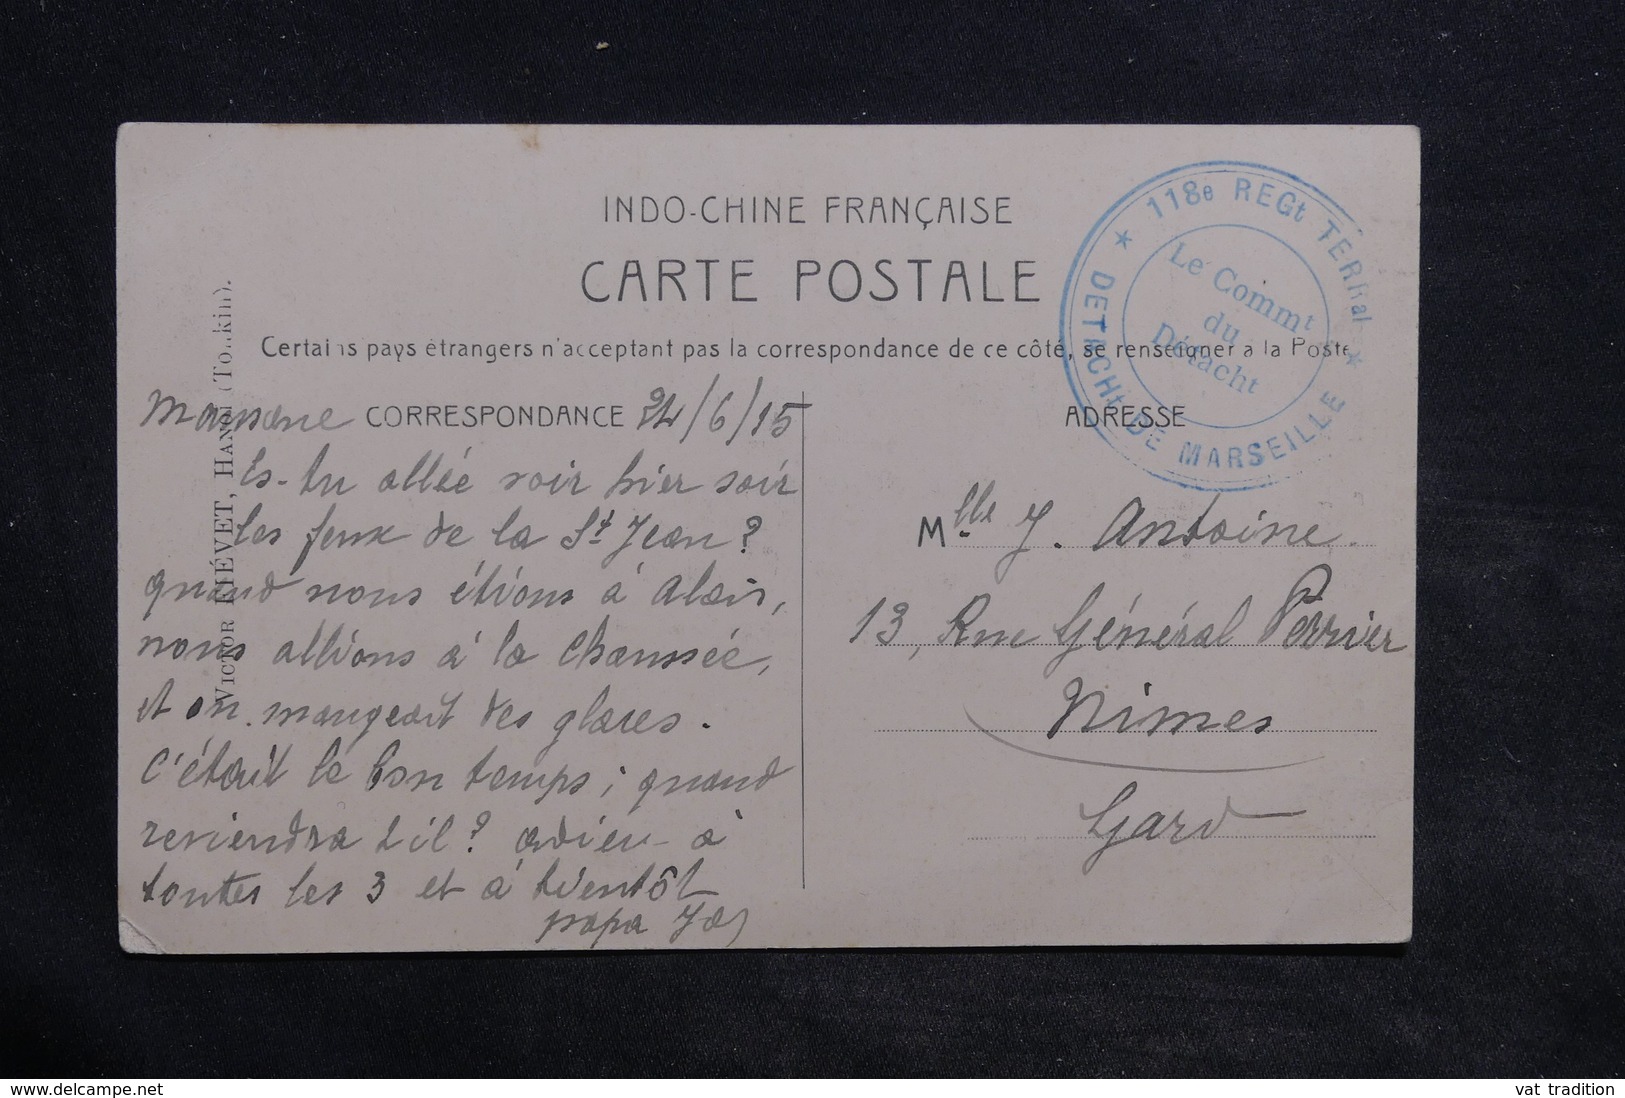 INDO-CHINE FRANÇAISE
CARTE POSTALE
Certains pays étrangers n'acceptant pas la correspondance de ce côté, se renseigner à la Poste
118e REGt TERRal
DETACHt DE MARSEILLE
Le Commt
du
Détacht
VICTOR FIÉVET, HANOÏ (Tonkin).
CORRESPONDANCE 24/6/15
Es-tu allée voir hier soir
les feux de la St Jean ?
quand nous étions à Alais,
nous allions à la Chaussée,
et on mangeait des glaces.
C'était le bon temps ; quand
reviendra t il ? adieu à
toutes les 3 et à bientôt
papa
ADRESSE
Mlle J. Antoine
13, Rue Général Perrier
Nimes
Gard
delcampe.net
vat tradition